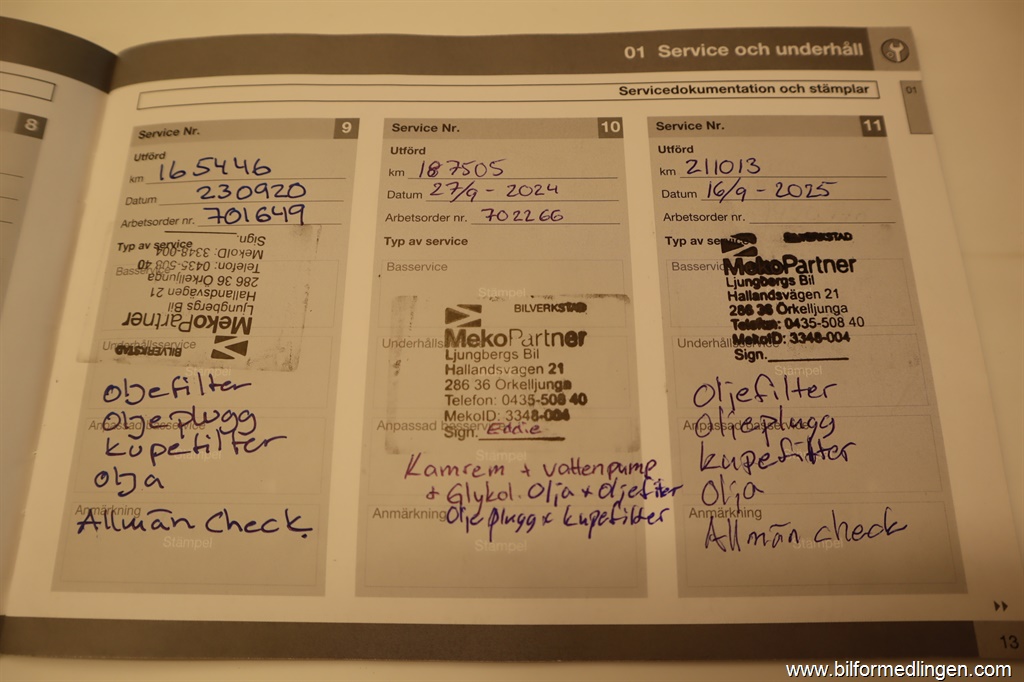 01 Service och underhåll
Servicedokumentation och stämplar
01
8
Service Nr. 9
Utförd
km 165446
Datum 230920
Arbetsorder nr. 701649
Typ av service
Basservice
BILVERKSTAD
MekoPartner
Ljungbergs Bil
Hallandsvägen 21
286 36 Örkelljunga
Telefon: 0435-508 40
MekoID: 3348-004
Sign.
Underhållsservice
Stämpel
oljefilter
oljeplugg
Anpassad basservice
kupefilter
olja
Anmärkning
Allmän check
Stämpel
Service Nr. 10
Utförd
km 187505
Datum 27/9 - 2024
Arbetsorder nr. 702266
Typ av service
Basservice
Stämpel
BILVERKSTAD
MekoPartner
Ljungbergs Bil
Hallandsvägen 21
286 36 Örkelljunga
Telefon: 0435-508 40
MekoID: 3348-004
Sign. Eddie
Underhållsservice
Anpassad basservice
Stämpel
Kamrem + vattenpump
+ Glykol. Olja + oljefilter
Anmärkning
Oljeplugg + kupefilter
Stämpel
Service Nr. 11
Utförd
km 211013
Datum 16/9 - 2025
Arbetsorder nr.
Typ av service
Basservice
BILVERKSTAD
MekoPartner
Ljungbergs Bil
Hallandsvägen 21
286 36 Örkelljunga
Telefon: 0435-508 40
MekoID: 3348-004
Sign.
Underhållsservice
Stämpel
Oljefilter
Oljeplugg
Anpassad basservice
kupefilter
Olja
Anmärkning
Allmän check
Stämpel
13
www.bilformedlingen.com